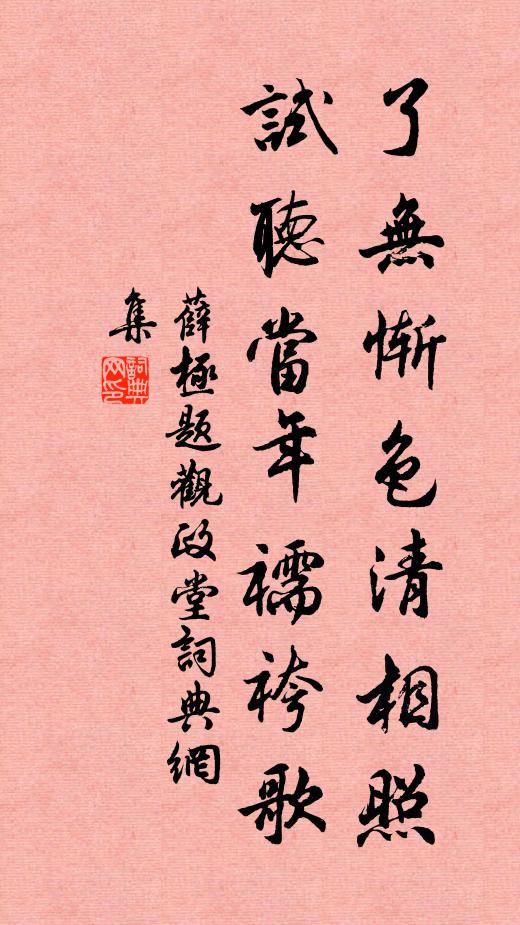 了無慚色清相照
試聽當年襦袴歌
薛極題觀政堂詞典網
集
詞典
网印